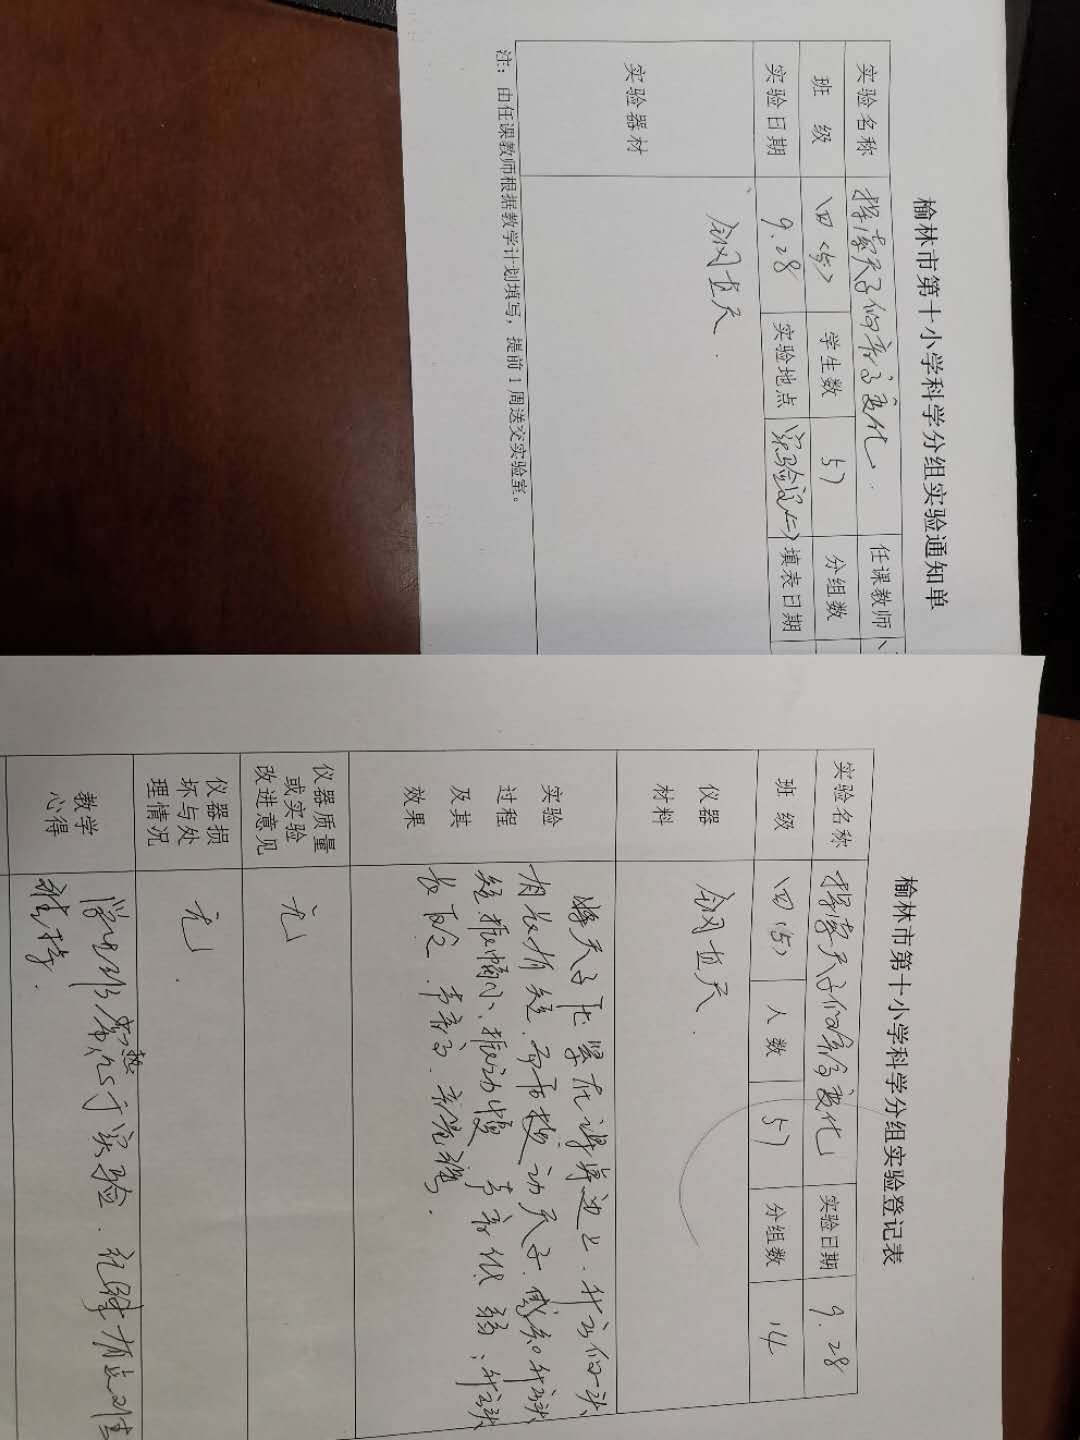 榆林市第十小学科学分组实验通知单
实验名称 探索尺子的音高变化 任课教师
班 级 四(5) 学生数 57 分组数
实验日期 9.28 实验地点 实验室(二) 填表日期
实验器材 钢直尺
注：由任课教师根据教学计划填写，提前1周送交实验室。
榆林市第十小学科学分组实验登记表
实验名称 探索尺子的音高变化 实验日期 9.28
班 级 四(5) 人数 57 分组数 14
仪器
材料
钢直尺
实验
过程
及其
效果
将尺子压紧在课桌边上，伸出的一头
有长有短，
短 振幅小、振动慢 声音低 弱；伸出
长
仪器质量
或实验
改进意见
无
仪器损
坏与处
理情况
无
教学
心得
于实验，纪律有点难
维持